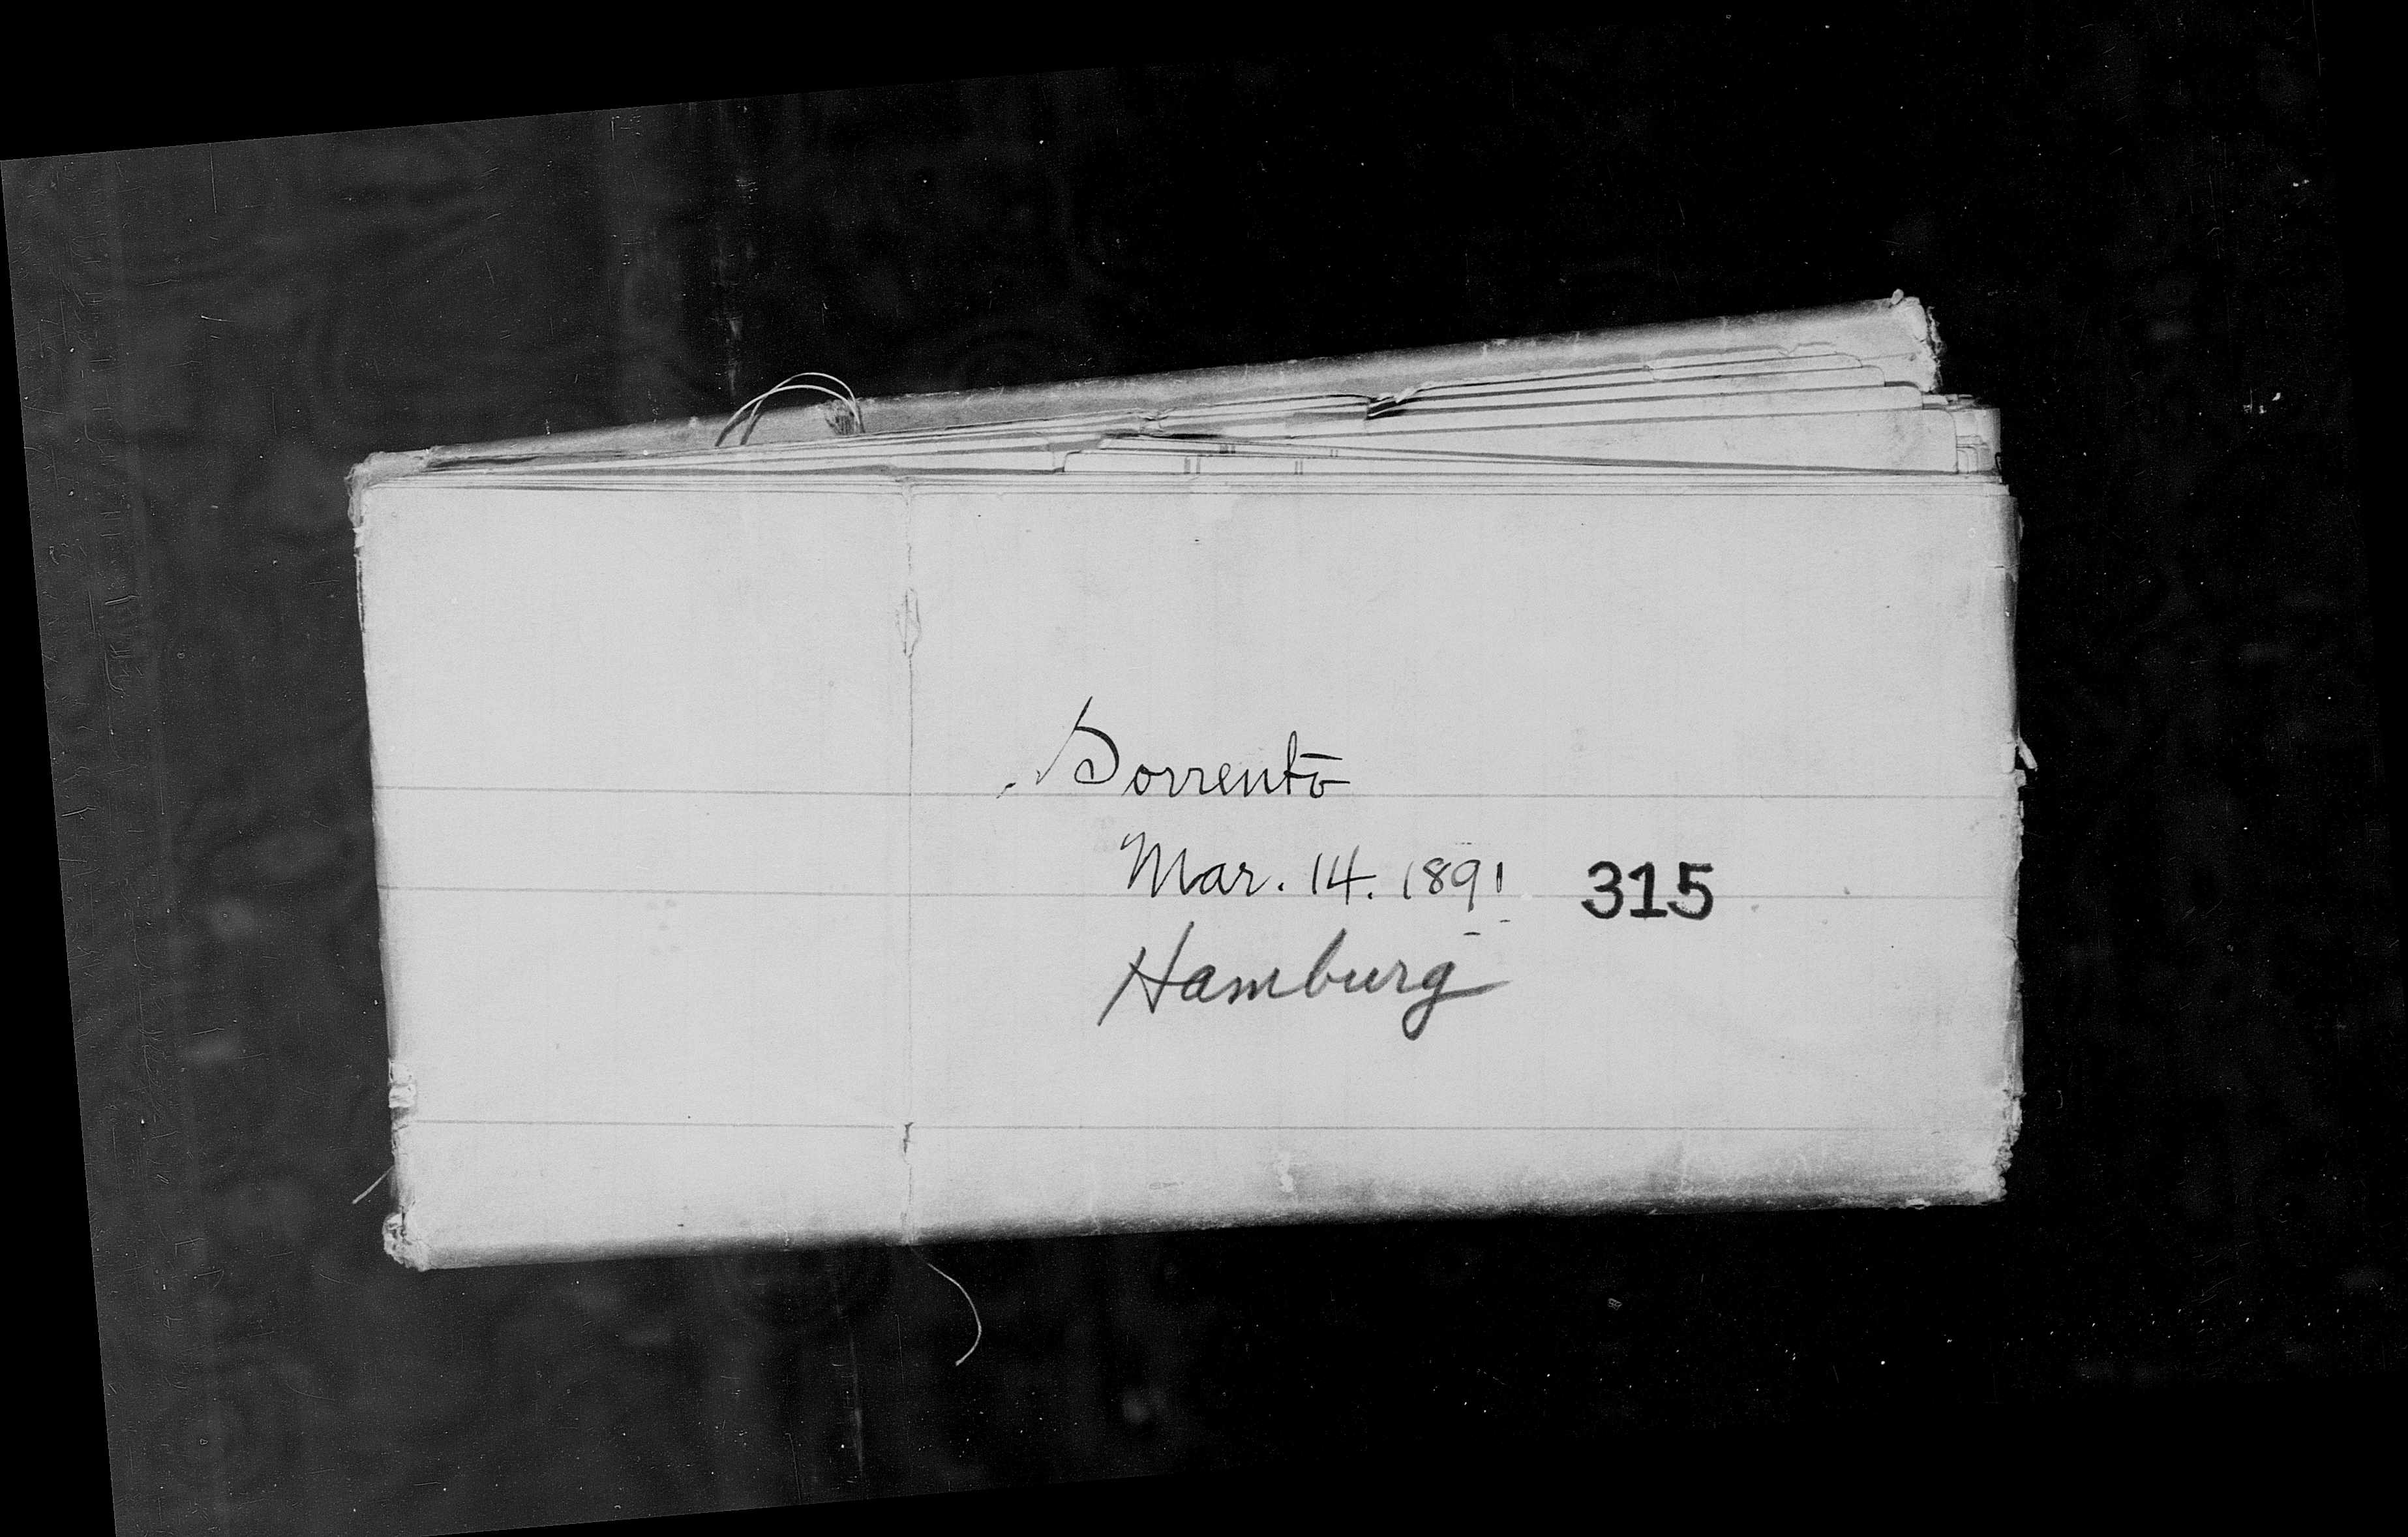 Sorrento
Mar. 14. 1891 315
Hamburg